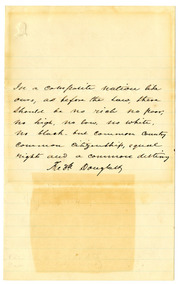 In a composite nation like
ours, as before the law, there
should be no rich no poor,
no high, no low, no white,
no black, but common country
common citizenship, equal
rights and a common destiny
Fredk Douglass